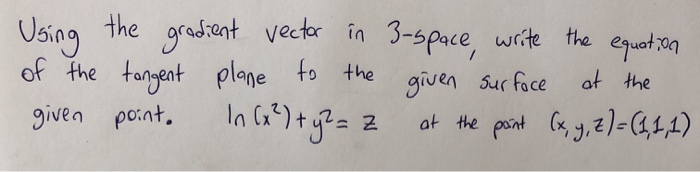 Using the gradient vector in 3-space, write the equation
of the tangent plane to the given surface at the
given point. ln(x²)+y²= z at the point (x,y,z)=(1,1,1)